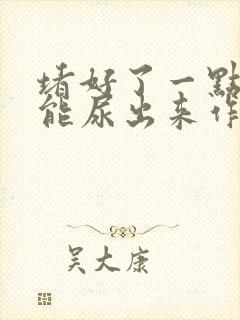 堵好了一點
能尿出来作
吴大康